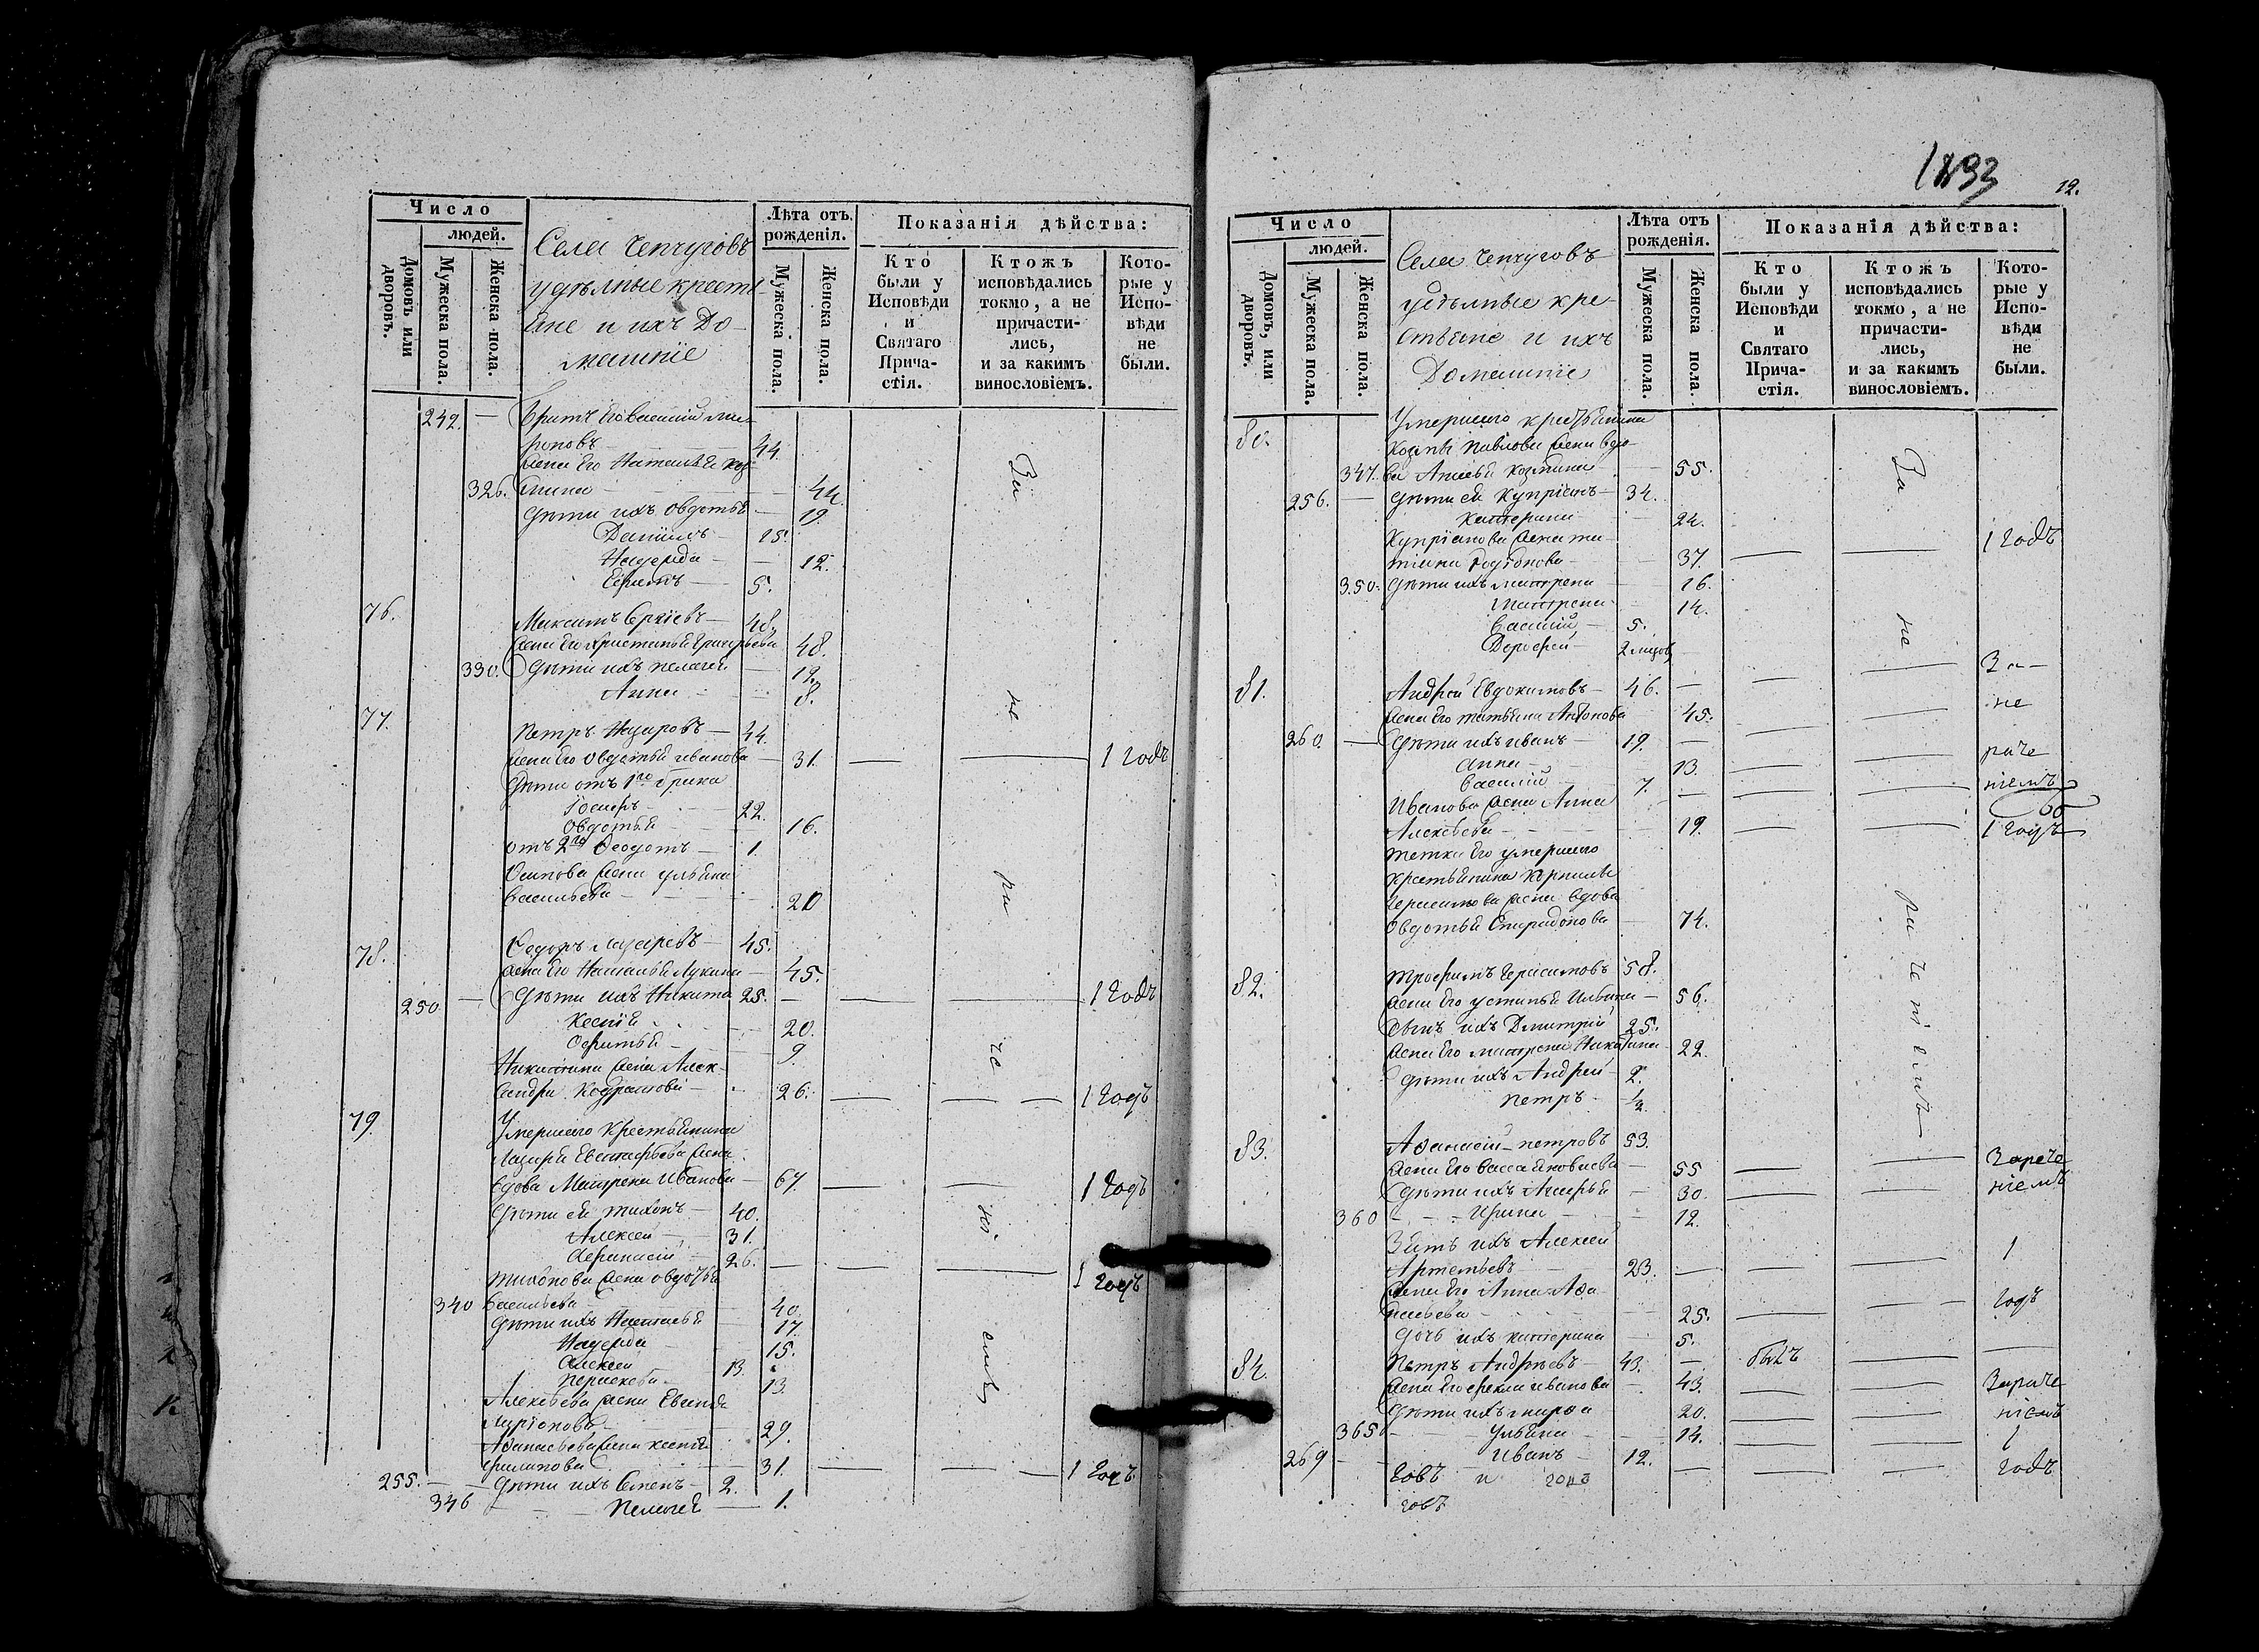 Число
людей.
Домовъ или дворовъ.
Мужеска пола.
Женска пола.
Села Чепчуговъ
удѣльные кресть-
яне и ихъ До-
машніе
Лѣта отъ рожденія.
Мужеска пола.
Женска пола.
Показанія дѣйства:
Кто были у Исповѣди и Святаго Прича-стія.
Ктожъ исповѣдались токмо, а не причасти-лись, и за какимъ винословіемъ.
Кото-рые у Испо-вѣди не были.
242. — Братъ Его Василій Ми-
роновъ — 44.
Жена Его Наталья Коз-
326. мина — 44.
Дѣти ихъ Овдотья — 19.
Даниилъ — 15.
Надежда — 12.
Ефимъ — 5.
76. Максимъ Сергіевъ — 48.
Жена Его Христинья Григорьева 48.
330. Дѣти ихъ Пелагея — 12.
Анна — 8.
77. Петръ Назаровъ — 44.
Жена Его Овдотья Иванова — 31. — — 1 годъ
Дѣти отъ 1го брака
Іосифъ — 22.
Овдотья — 16.
отъ 2го Ѳеодотъ — 1.
Осипова жена Ульяна
Васильева — 20
78. Ѳедоръ Лазаревъ — 45.
Жена Его Наталья Лукина — 45.
250 — Дѣти ихъ Никита 25. — — — 1 годъ
Ксенія — 20.
Офимья — 9.
Никитина жена Алек-
сандра — 26. — — — 1 годъ
79. Умершаго крестьянина
Лазаря жена
вдова Матрена Иванова — 67. — — 1 годъ
Дѣти ея Тихонъ — 40.
Алексей — 31.
Афанасій — 26. — — — 1 годъ
Тихонова жена Овдотья
340 Васильева — 40.
Дѣти ихъ Наталья 17.
Надежда — 15.
Алексей 13.
13.
Алексѣева жена
29.
Аѳанасьева жена Ксенія
Филипова — 31. — — — 1 годъ
255. — Дѣти ихъ Семенъ — 2.
346 — Пелагея — 1.
За
не
ра
че
ні
емъ
1893
12.
Число
людей.
Домовъ, или дворовъ.
Мужеска пола.
Женска пола.
Села Чепчуговъ
удѣльные кре-
стьяне и ихъ
Домашніе
Лѣта отъ рожденія.
Мужеска пола.
Женска пола.
Показанія дѣйства:
Кто были у Исповѣди и Святаго Прича-стія.
Ктожъ исповѣдались токмо, а не причасти-лись, и за какимъ винословіемъ.
Кото-рые у Испо-вѣди не были.
80. Умершаго крестьянина
Козмы Павлова жена вдо-
347. ва Козмина — 55.
256. — Дѣти ея Купріянъ — 34.
Катерина — 24.
Купріянова жена Та-
тіана Родіонова — 37. — — 1 годъ
350. Дѣти ихъ Матрена — 16.
Матрена — 14.
Василій — 5.
Дорофей — 2 месяц.
81. Андрей Евдокимовъ — 46. — — — За-
Жена Его Татьяна Антонова 45. — — не
260. — Дѣти ихъ Иванъ — 19. — — —
Анна — 13. — — раче
Василій — 7. — — — ніемъ
Иванова жена Анна
Алексѣева — 19. — — 1 годъ
Тетка Его умершаго
крестьянина Корнилы
Герасимова жена вдова
Овдотья Спиридонова — 74.
82. Трофимъ Герасимовъ 58.
Жена Его Устинья Ильина — 56.
Сынъ ихъ Дмитрій 25.
Жена Его Матрена Никитина 22.
Дѣти ихъ Андрей — 2.
Петръ — ½.
83. Аѳанасій Петровъ 53.
Жена Его Васса Яковлева — 55 — — Зараче
Дѣти ихъ Марья — 30. — — ніемъ
360 — Ирина — 12.
Зять ихъ Алексей 1
Артемьевъ — 23. — — —
Жена Его Анна Аѳа
насьева — 25. — — годъ
Дочь ихъ Катерина — 5.
84. Петръ Андреевъ — 43. — былъ — —
Жена Его Фекла Иванова — 43. — — Зараче
Дѣти ихъ Марѳа — 20. — — ніемъ
365 — Ульяна — 14. — — 1
269 — Иванъ — 12. — — — годъ
За
не
ра
че
ні
емъ